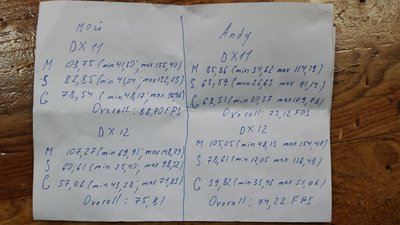 мой
DX11
M 103,75 (min 41,30; max 155,40)
S 82,85 (min 41,04; max 132,03)
C 78,54 (min 48,17; max 96,96)
Overall: 88,70 FPS
DX 12
M 107,27 (min 69,91; max 148,73)
S 60,61 (min 25,40; max 98,12)
C 57,06 (min 43,28; max 71,85)
Overall: 75,81
Andy
DX11
M 85,86 (min 34,62 max 114,19)
S 63,59 (min 26,63 max 91,14)
C 68,31 (min 30,37 max 109,76)
Overall: 73,12 FPS
DX12
M 105,05 (min 48,13 max 154,48)
S 78,61 (min 17,05 max 116,48)
C 39,82 (min 33,46 max 51,06)
Overall: 74,22 FPS